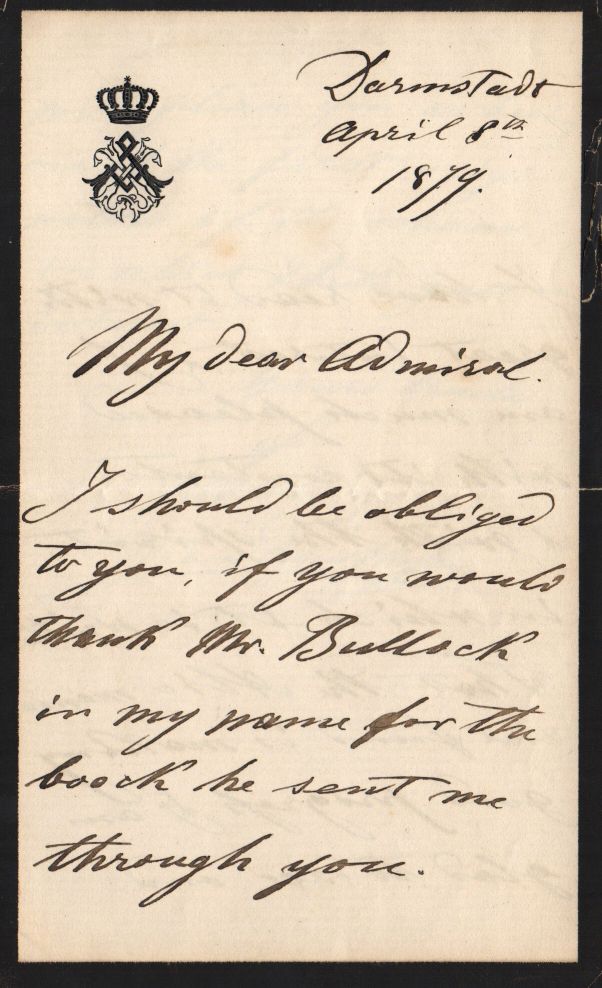 Darmstadt
April 8th
1879.
My dear Admiral.
I should be obliged
to you, if you would
thank Mr. Bullock
in my name for the
boock he sent me
through you.